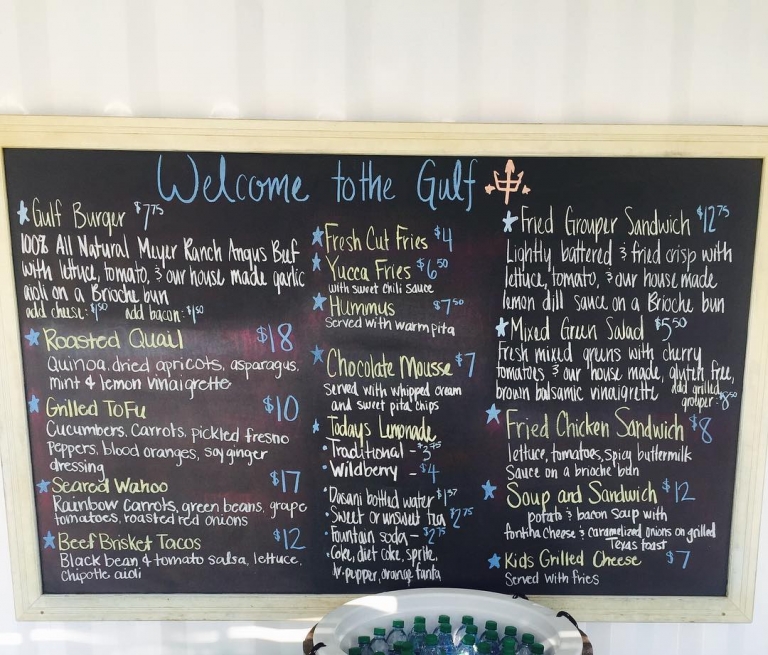 Welcome to the Gulf
Gulf Burger $7.75
100% All Natural Meyer Ranch Angus Beef
with lettuce, tomato, & our house made garlic
aioli on a Brioche bun
add cheese: $1.50 add bacon: $1.50
Roasted Quail $18
Quinoa, dried apricots, asparagus,
mint & lemon vinaigrette
Grilled Tofu $10
Cucumbers, Carrots, pickled fresno
Peppers, blood oranges, soy ginger
dressing
Seared Wahoo $17
Rainbow Carrots, green beans, grape
tomatoes, roasted red onions
Beef Brisket Tacos $12
Black bean & tomato salsa, lettuce,
Chipotle aioli
Fresh Cut Fries $4
Yucca Fries $6.50
with sweet chili sauce
Hummus $7.50
Served with warm pita
Chocolate Mousse $7
Served with whipped cream
and sweet pita chips
Todays Lemonade
Traditional - $3.75
Wildberry - $4
Dasani bottled water $1.57
Sweet or unsweet tea $2.75
Fountain soda - $2.75
Coke, diet coke, sprite,
dr. pepper, orange fanta
Fried Grouper Sandwich $12.75
Lightly battered & fried crisp with
lettuce, tomato, & our house made
lemon dill sauce on a Brioche bun
Mixed Green Salad $5.50
Fresh mixed greens with cherry
tomatoes & our house made, gluten free,
brown balsamic vinaigrette add grilled
grouper: $8.50
Fried Chicken Sandwich $8
lettuce, tomatoes, spicy buttermilk
Sauce on a brioche bun
Soup and Sandwich $12
potato & bacon soup with
fontina cheese & caramelized onions on grilled
Texas toast
Kids Grilled Cheese $7
Served with fries